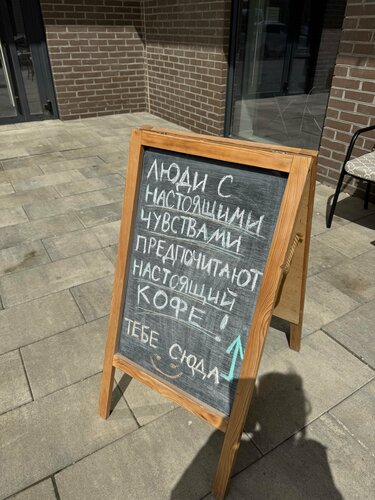 ЛЮДИ С
НАСТОЯЩИМИ
ЧУВСТВАМИ
ПРЕДПОЧИТАЮТ
НАСТОЯЩИЙ
КОФЕ!
ТЕБЕ СЮДА